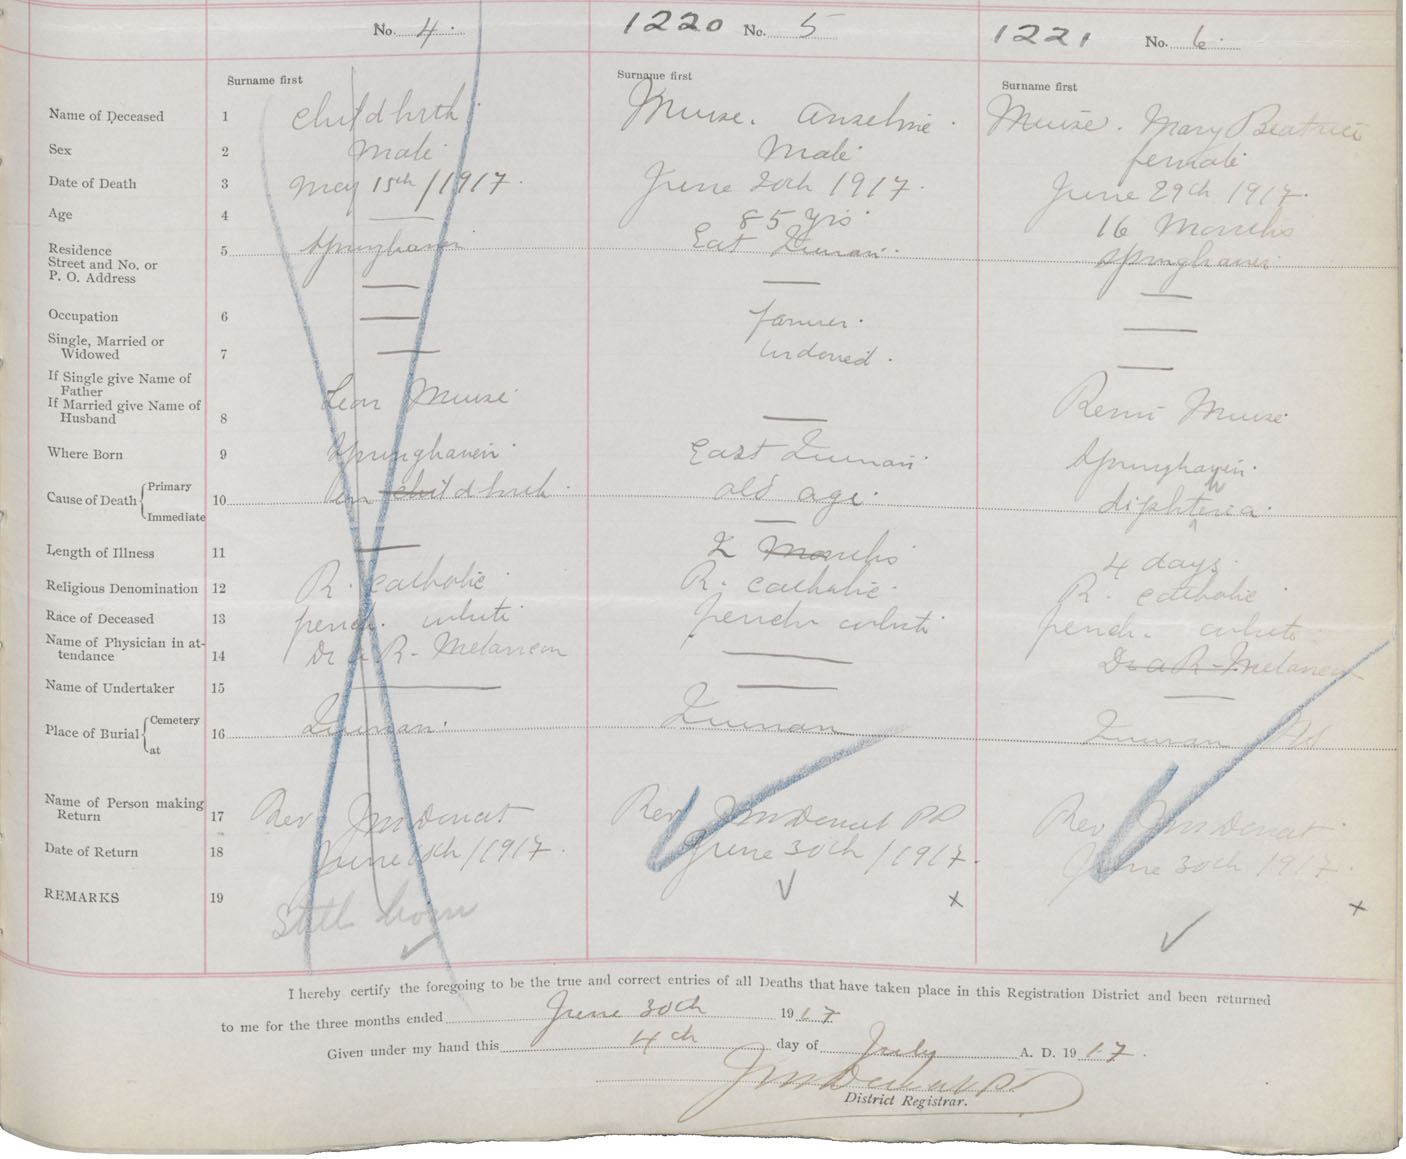 No. 4. 1220 No. 5 1221 No. 6.
Surname first Surname first Surname first
Name of Deceased 1 Childbirth Muise. Anselme. Muise. Mary Beatrice
Sex 2 Male Male female
Date of Death 3 May 15th / 1917. June 20th 1917. June 29th 1917.
Age 4 — 85 yrs 16 Months
Residence 5 Springhaven East Quinan. Springhaven
Street and No. or
P. O. Address — — —
Occupation 6 — farmer. —
Single, Married or
Widowed 7 — widowed. —
If Single give Name of
Father
If Married give Name of
Husband 8 Leon Muise — Remi Muise
Where Born 9 Springhaven. East Quinan Springhaven.
Cause of Death Primary 10 childbirth. old age. diphtheria.
Immediate —
Length of Illness 11 — 2 Months 4 days.
Religious Denomination 12 R. catholic. R. catholic. R. catholic
Race of Deceased 13 french. white french white french. white
Name of Physician in at-
tendance 14 Dr a. R. Melancon — Dr a R. Melancon
Name of Undertaker 15 — — —
Place of Burial Cemetery 16 Quinan. Quinan Quinan NS
at
Name of Person making
Return 17 Rev Rev PP Rev
Date of Return 18 June /1917. June 30th /1917. June 30th 1917.
REMARKS 19 Still born x x
I hereby certify the foregoing to be the true and correct entries of all Deaths that have taken place in this Registration District and been returned
to me for the three months ended June 30th 1917
Given under my hand this 4th day of July A. D. 1917.
District Registrar.